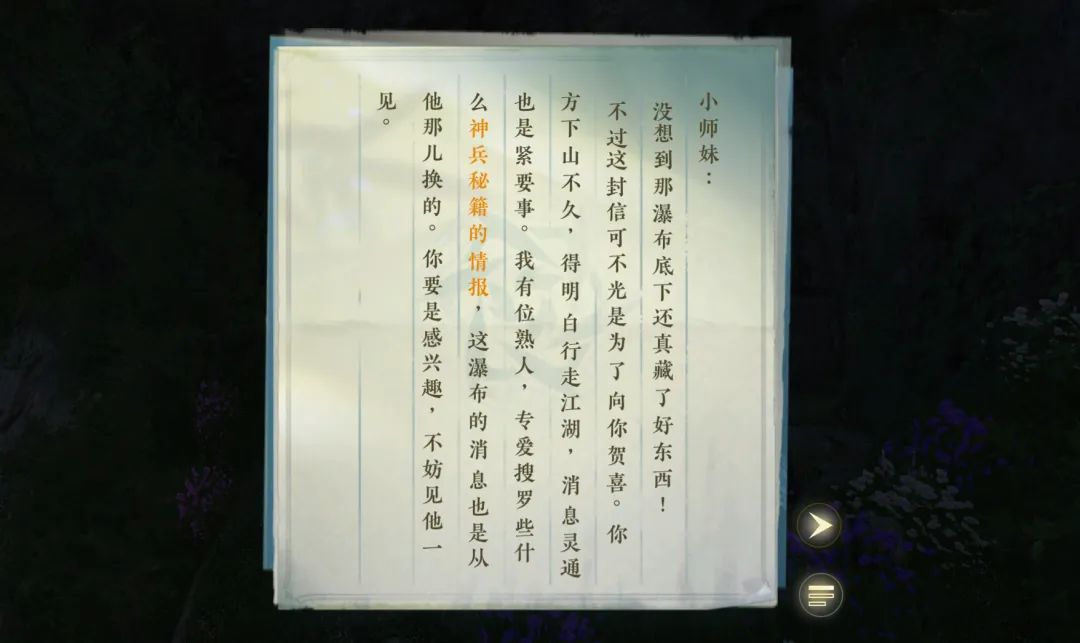 小师妹：
没想到那瀑布底下还真藏了好东西！
不过这封信可不光是为了向你贺喜。你
方下山不久，得明白行走江湖，消息灵通
也是紧要事。我有位熟人，专爱搜罗些什
么神兵秘籍的情报，这瀑布的消息也是从
他那儿换的。你要是感兴趣，不妨见他一
见。